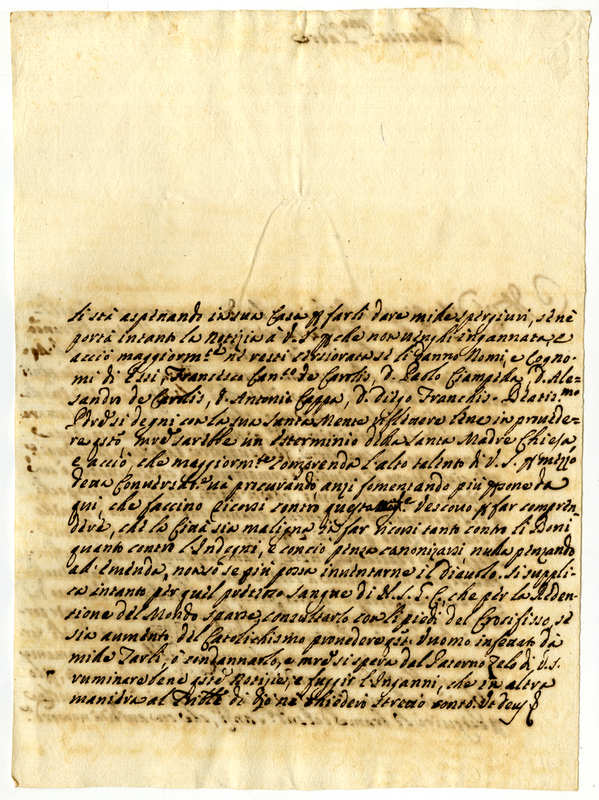 si stà aspettando in sua Casa p farli dare mille spergiuri, se ne
porta intanto la notizia à V. S. p che non venghi ingannata, e
acciò maggiorm.te ne resti sincerata se li danno Nomi, e Cogno-
mi di Essi, Francesco Can.co de Carolis, D. Paolo Ciampella, D. Ale-
sandro de Carolis, D. Antonio Cappa, D. Diego Franchis. Beatis.mo
Pdre si degni con la sua Santa Mente riflettere bene in provede-
re q.sto mentre sarebbe un esterminio della Santa Madre Chiesa
e acciò, che maggiorm.te comprenda l'alto talento di V. S. p mezzo
deva và procurando, anzi fomentando più psone da
qui, che faccino ricorsi contro questo Vescovo p far compren-
dere, che la Città sia maligna di far ricorsi tanto contro li Boni
quanto contro l'Indegni, e con ciò pensa canonizarsi nulla penzando
ad emenda, non so se più possa inventarne il diavolo. Si suppli-
ca intanto per quel prezioso sangue di N. S. G. C. che per la Reden-
tione del Mondo sparse, consultarlo con li piedi del Crocifisso, se
sia aumento del Catolichismo provedere q.sto huomo infettato da
mille Tarli, ò condannarlo, e mentre si spera dal Paterno Zelo di V. S.
ruminare bene q.ste Notizie, e fuggir l'Inganni, che in altra
maniera al di Dio ne chiederò stretto conto. Ut deus